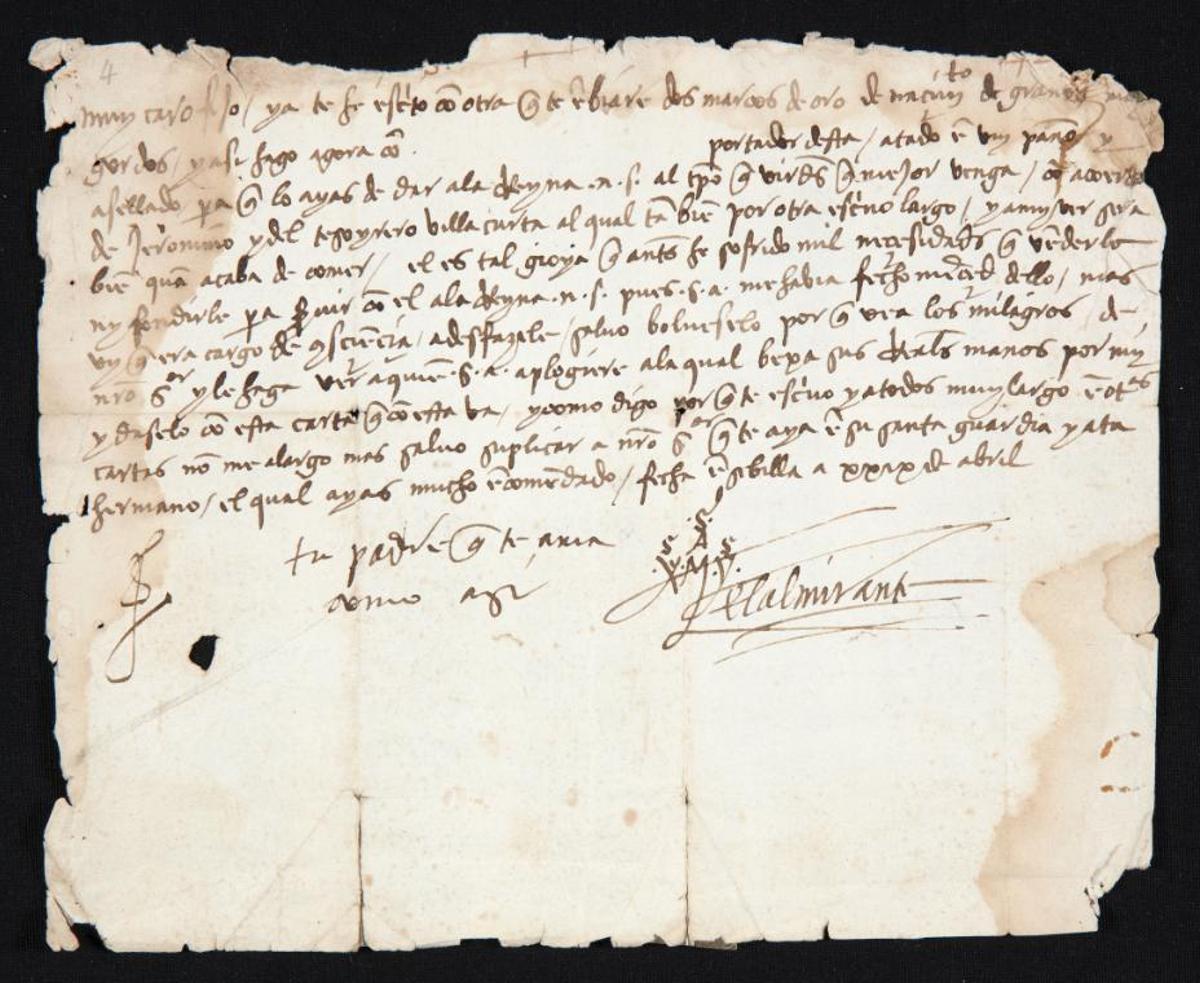 4
muy caro fijo / ya te he escrito cõ otra q̃ te ẽbiare dos marcos de oro de naciȷ̃ to de granos muy
gordos / y asi hago agora cõ portador desta / atado ẽ vn paño y
asellado pa q̃ lo ayas de dar ala Reyna .n.s. al tp̃o q̃ virds̃ q̃ mejor venga / cõ acuerdo
de Jeronimo y del tesoyrero villacurta al qual tãbiẽ por otra escrivo largo / y a my ver sera
biẽ quã acaba de comer / el es tal gioya q̃ antes he sofrido mil necesidads̃ q̃ vẽderlo
ny fondirle pa servir cõ el ala Reyna .n.s. pues .s.a. me habia fecho merced dello / mas
vy q̃ era cargo de cõsciẽcia / a desfazele / salvo bolverselo por q̃ vea los milagros / de
nr̃o sor y le haga ver a quiẽ .s.a. aplogiere ala qual bexa sus Reals̃ manos por my
y daselo cõ esta carta q̃ cõ esta va / y como digo por q̃ te escrivo y a todos muy largo ẽ otas
cartas nõ me alargo mas salvo suplicar a nr̃o sor q̃ te aya ẽ su santa guardia y a tu
hermano / el qual ayas mucho ẽcomẽdado / fecha ẽ sebilla a xxix de abril
tu padre q̃ te ama
como a sȷ̃
.S.
.S. A .S.
X M Y
el almirante